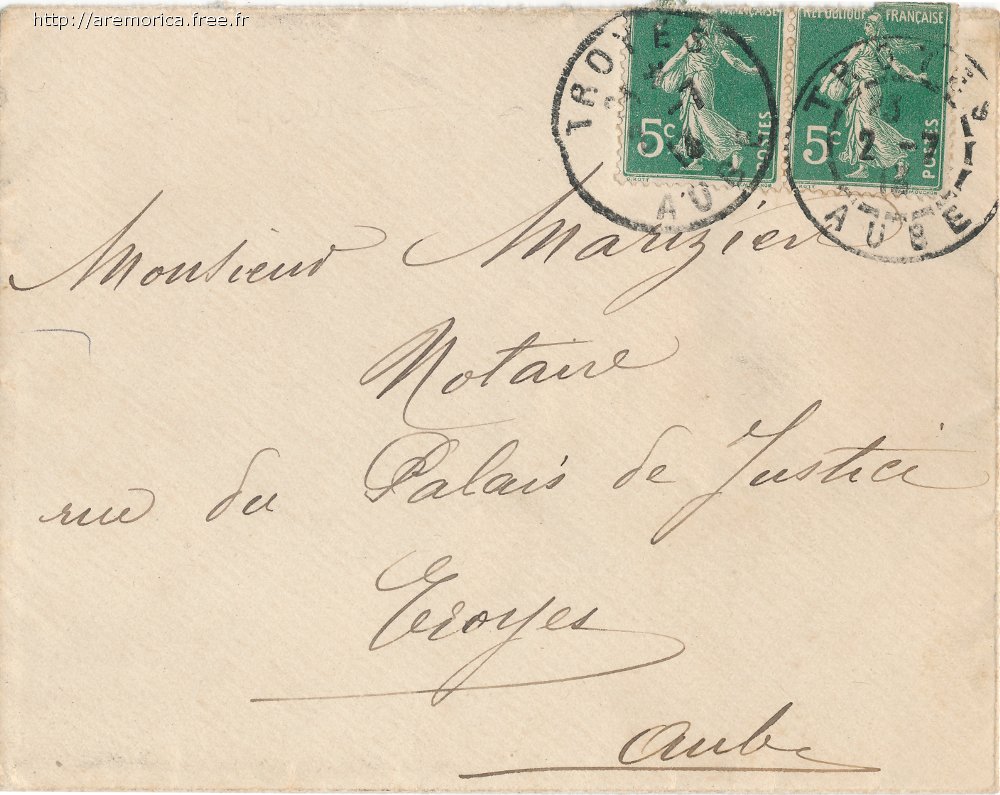 http://aremorica.free.fr
RÉPUBLIQUE FRANÇAISE
5c POSTES
5c POSTES
TROYES
AUBE
TROYES
2 - 7
AUBE
Monsieur
Notaire
rue du Palais de Justice
Troyes
Aube